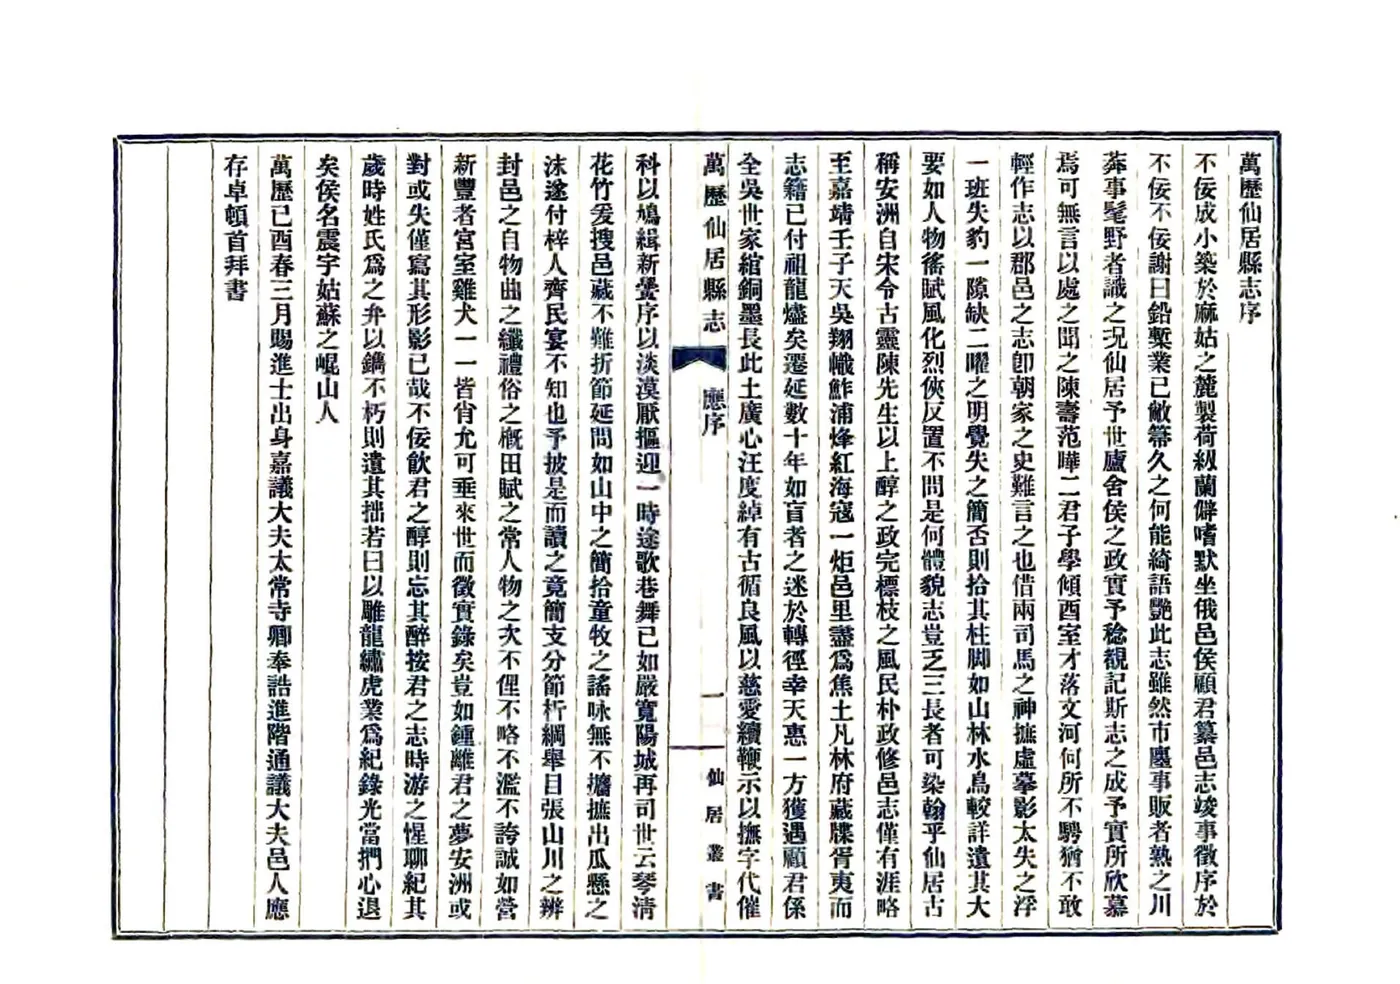 萬歷仙居縣志序
不佞成小築於麻姑之麓製荷紉蘭僻嗜默坐俄邑侯顧君纂邑志竣事徵序於
不佞不佞謝曰鉛槧業已敝箒久之何能綺語艷此志雖然市廛事販者熟之川
莽事髦野者識之况仙居予世廬舍侯之政實予稔覩記斯志之成予實所欣慕
焉可無言以處之聞之陳壽范曄二君子學傾酉室才落文河何所不騁猶不敢
輕作志以郡邑之志卽朝家之史難言之也借兩司馬之神摭虛摹影太失之浮
一班失豹一隙缺二曜之明覺失之簡否則拾其柱脚如山林水鳥較詳遺其大
要如人物徭賦風化烈俠反置不問是何體貌志豈乏三長者可染翰乎仙居古
稱安洲自宋令古靈陳先生以上醇之政完標枝之風民朴政修邑志僅有涯略
至嘉靖壬子天吳翔幟鮓浦烽紅海寇一炬邑里盡爲焦土凡林府藏牒胥夷而
志籍已付祖龍燼矣遷延數十年如盲者之迷於轉徑幸天惠一方獲遇顧君係
全吳世家綰銅墨長此土廣心汪度綽有古循良風以慈愛續鞭示以撫字代催
萬歷仙居縣志
應序
一
仙居叢書
科以鳩緝新黌序以淡漠厭摳迎一時途歌巷舞已如嚴寬陽城再司世云琴清
花竹爰搜邑藏不難折節延問如山中之簡拾童牧之謠咏無不攟摭出瓜懸之
沫遂付梓人齊民宴不知也予披是而讀之竟簡支分節析綱舉目張山川之辨
封邑之自物曲之纖禮俗之槪田賦之常人物之次不俚不略不濫不誇誠如營
新豐者宮室雞犬一一皆肖允可垂來世而徵實錄矣豈如鍾離君之夢安洲或
對或失僅寫其形影已哉不佞飮君之醇則忘其醉按君之志時游之惺聊紀其
歲時姓氏爲之弁以鐫不朽則遺其拙若曰以雕龍繡虎業爲紀錄光當捫心退
矣侯名震宇姑蘇之崐山人
萬歷已酉春三月賜進士出身嘉議大夫太常寺卿奉誥進階通議大夫邑人應
存卓頓首拜書